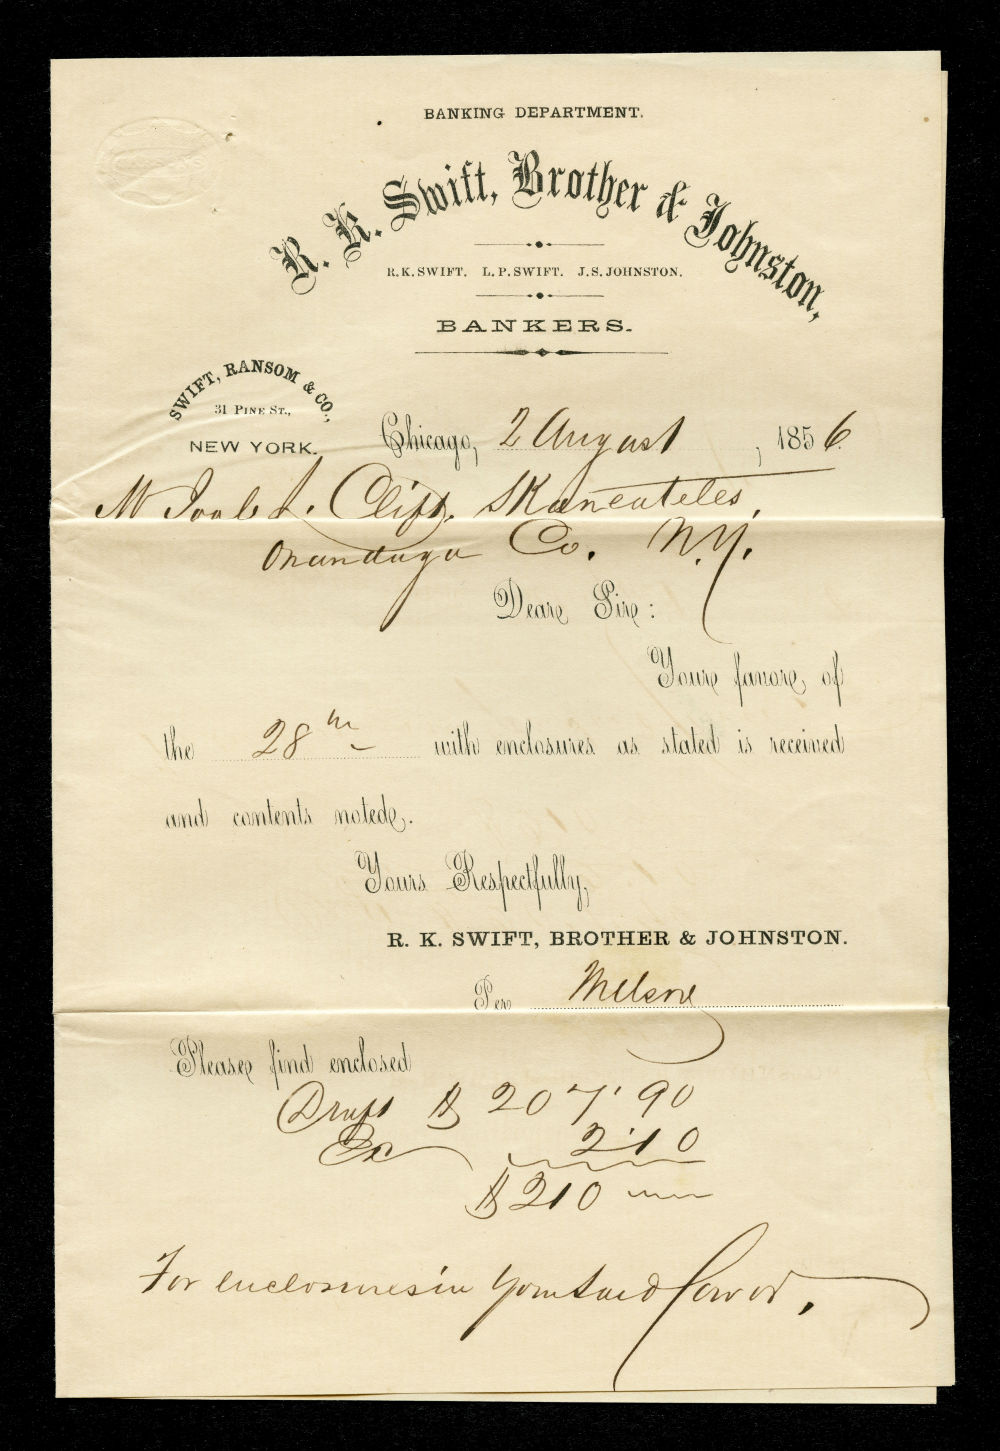 BANKING DEPARTMENT.
R. K. Swift, Brother & Johnston,
R. K. SWIFT. L. P. SWIFT. J. S. JOHNSTON.
BANKERS.
SWIFT, RANSOM & CO.,
31 PINE ST.,
NEW YORK.
Chicago, 2 August, 1856.
M Joab L. Clift. Skaneateles,
Onandaga Co. N.Y.
Dear Sir:
Your favor of
the 28th with enclosures as stated is received
and contents noted.
Yours Respectfully,
R. K. SWIFT, BROTHER & JOHNSTON.
Per
Please find enclosed
Draft $ 207.90
Ex 2.10
$210
For enclosures in your said favor.